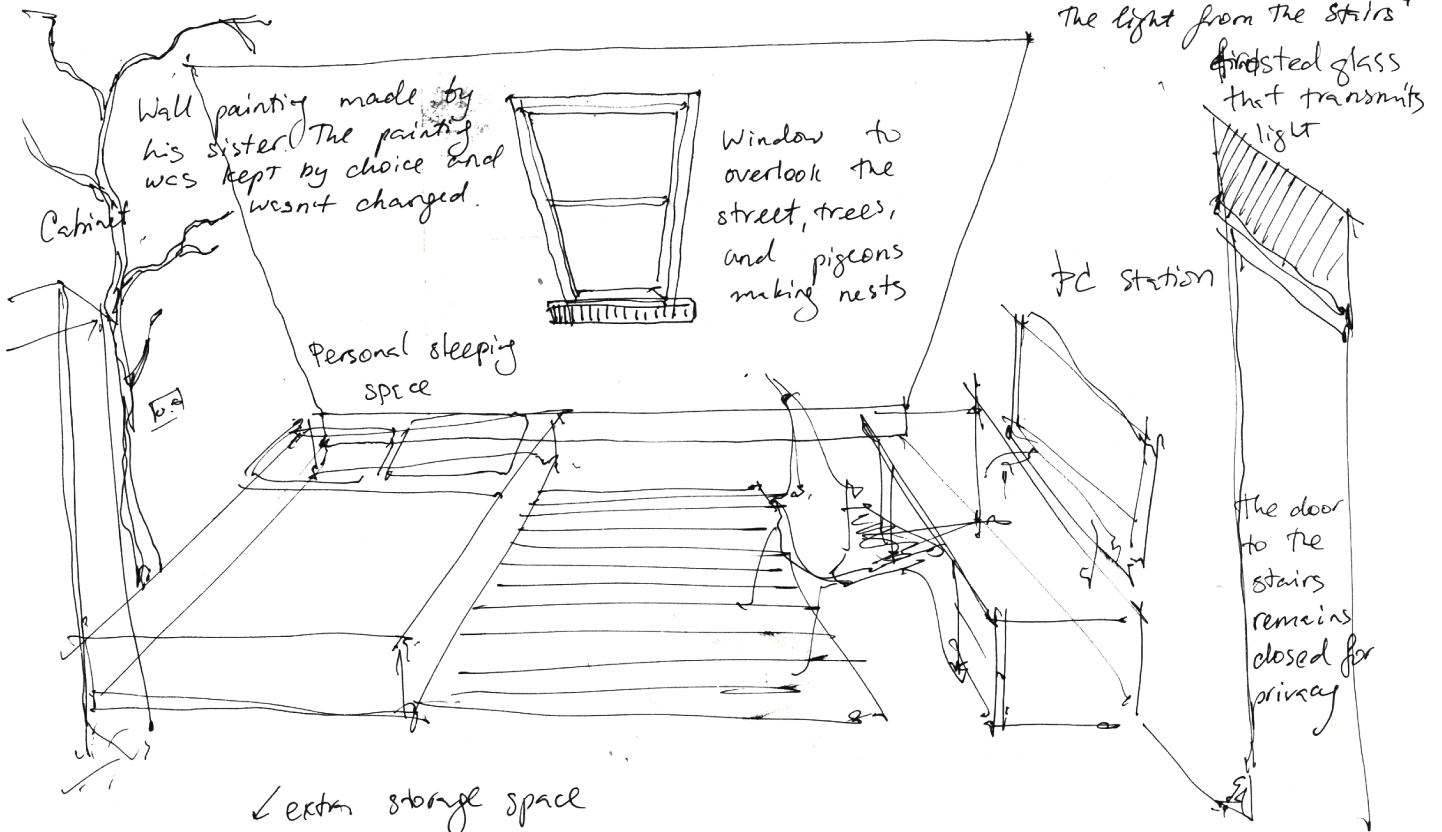 The light from the stairs
frosted glass
that transmits
light
Wall painting made by
his sister. The painting
was kept by choice and
wasn't changed.
Cabinet
Window to
overlook the
street, trees,
and pigeons
making nests
PC station
Personal sleeping
space
the door
to the
stairs
remains
closed for
privacy
↙ extra storage space